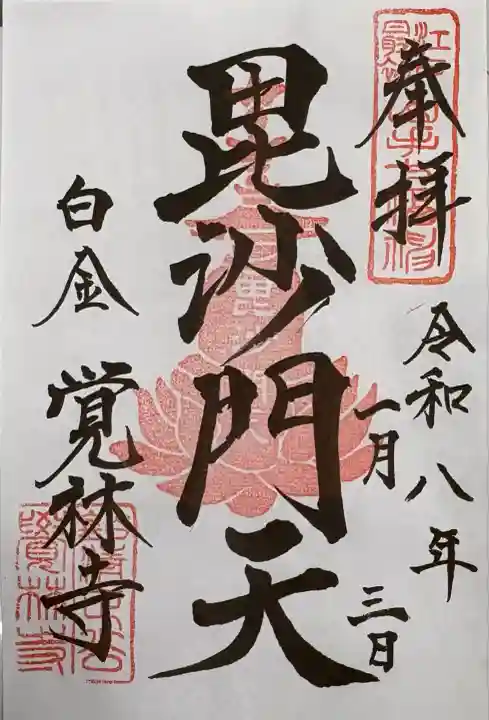 奉拝
令和八年
一月
三日
毘沙門天
白金
覚林寺